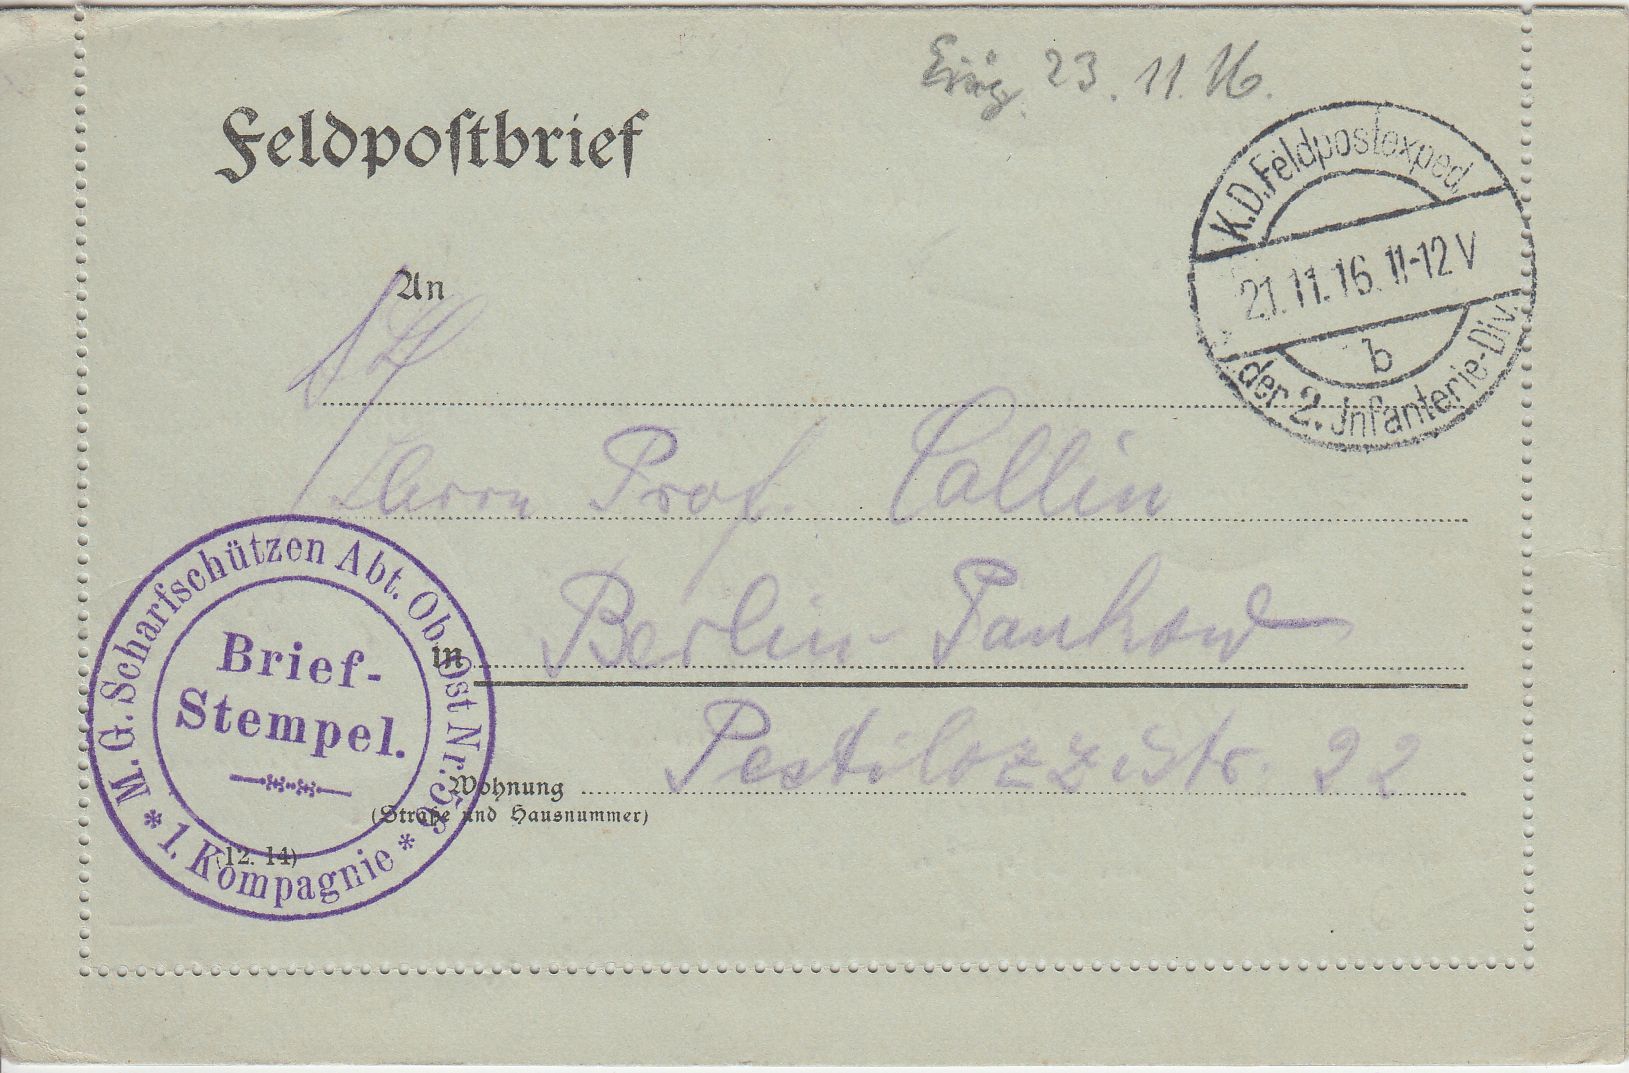 Eing. 23. 11. 16.
Feldpostbrief
K.D.Feldpostexped.
21.11.16. 11-12 V
b
der 2. Infanterie-Div.
An
Herrn Prof. Collin
in Berlin Pankow
Pestilozzistr. 22
Wohnung
(Straße und Hausnummer)
M.G. Scharfschützen Abt. Ob. Ost Nr.
Brief-
Stempel.
* 1. Kompagnie *
(12. 14)